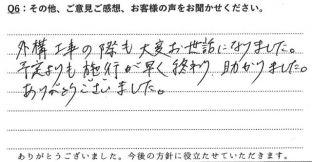 Q6：その他、ご意見ご感想、お客様の声をお聞かせください。
外構工事の際も大変お世話になりました。
予定よりも施行が早く終わり助かりました。
ありがとうございました。
ありがとうございました。今後の方針に役立たせていただきます。